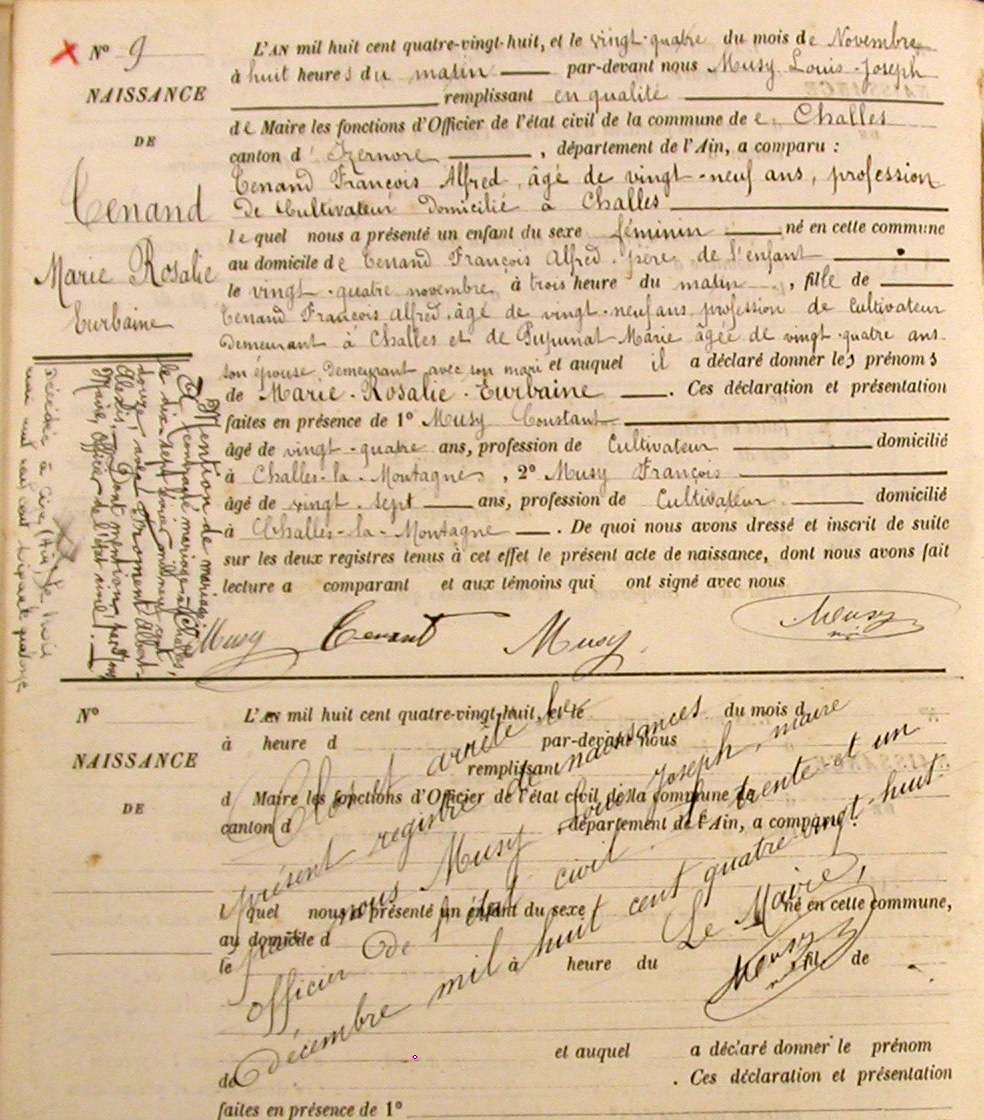 N° 9
NAISSANCE
DE
Tenand
Marie Rosalie
Eurbaine
L'AN mil huit cent quatre-vingt-huit, et le vingt-quatre du mois de Novembre
à huit heures du matin par-devant nous Musy Louis-Joseph
remplissant en qualité
de Maire les fonctions d'Officier de l'état civil de la commune de Challes
canton d'Izernore, département de l'Ain, a comparu :
Tenand François Alfred, âgé de vingt-neuf ans, profession
de Cultivateur domicilié à Challes
lequel nous a présenté un enfant du sexe féminin né en cette commune
au domicile de Tenand François Alfred père de l'enfant
le vingt-quatre novembre à trois heure du matin, fille de
Tenand François Alfred âgé de vingt-neuf ans profession de Cultivateur
demeurant à Challes et de Pupunat Marie âgée de vingt-quatre ans
son épouse demeurant avec son mari et auquel il a déclaré donner les prénoms
de Marie-Rosalie-Eurbaine. Ces déclaration et présentation
faites en présence de 1° Musy Constant
âgé de vingt-quatre ans, profession de Cultivateur domicilié
à Challes-la-Montagne, 2° Musy François
âgé de vingt-sept ans, profession de Cultivateur domicilié
à Challes-la-Montagne. De quoi nous avons dressé et inscrit de suite
sur les deux registres tenus à cet effet le présent acte de naissance, dont nous avons fait
lecture a comparant et aux témoins qui ont signé avec nous
Musy Tenant Musy Musy
Mention de mariage
le dix-sept
douze, avec Froment Albert-
Alexis. Dont mention par nous
Maire, officier de l'état civil.
Décédée à
mil neuf cent soixante quatorze
N°
NAISSANCE
DE
L'AN mil huit cent quatre-vingt-huit, et le du mois d
à heure d par-devant nous
remplissant
d Maire les fonctions d'Officier de l'état civil de la commune de
canton d , département de l'Ain, a comparu :
l quel nous a présenté un enfant du sexe né en cette commune,
au domicile d
le à heure du , fil de
et auquel a déclaré donner le prénom
de . Ces déclaration et présentation
faites en présence de 1°
Clos et arrêté le
présent registre de naissances
par nous Musy Louis Joseph, maire
officier de l'état civil le trente et un
décembre mil huit cent quatre-vingt-huit.
Le Maire,
Musy